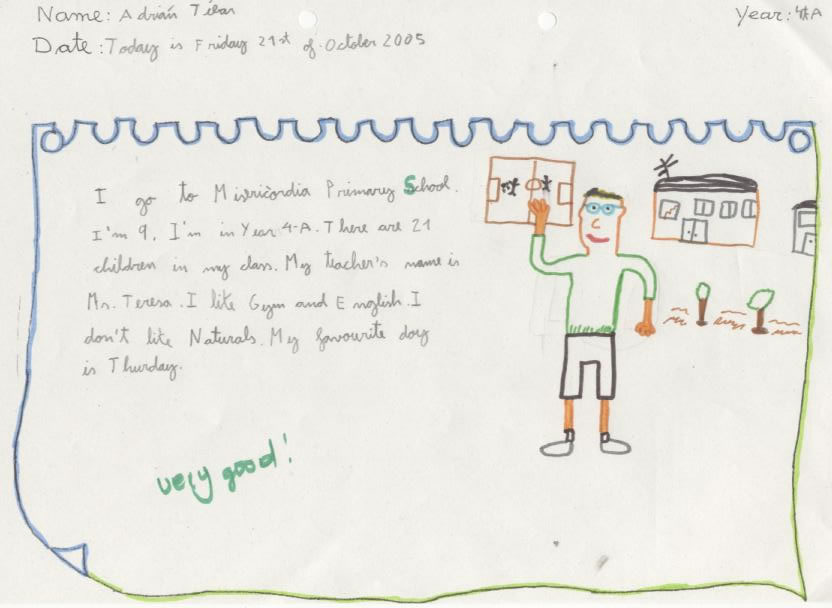 Name: Adrián
Year: 4tA
Date: Today is Friday 21st of October 2005
I go to Misericordia Primary School.
I'm 9, I'm in Year 4-A. There are 21
children in my class. My teacher's name is
Ms. Teresa. I like Gym and English. I
don't like Naturals. My favourite day
is Thurday.
very good!